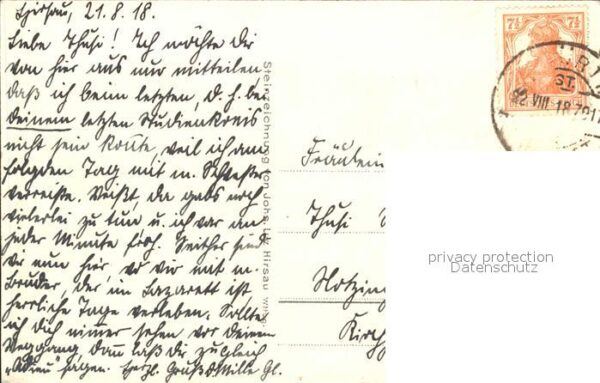 Hirsau, 21.8.18.
Liebe Thusi! Ich möchte dir
von hier aus nur mitteilen,
daß ich beim letzten, d. h. bei
deinem letzten Studienkreis
nicht sein konnte, weil ich am
folgden Tag mit m. Schwester
verreiste. Weißt, da gabs noch
vielerlei zu tun u. ich war um
jeder Minute froh. Seither sind
wir nun hier, wo wir mit m.
Bruder, der im Lazarett ist,
herrliche Tage verleben. Sollte
ich dich nimmer sehen vor deinem
Weggang, dann laß dir zugleich
"Adieu" sagen. Herzl. Gruß d. Mille Gl.
Steinzeichnung von Joh. Hirsau
Fräulein
Thusi
Notzing
Kirch
7½ 7½
22.VIII.18.
privacy protection
Datenschutz